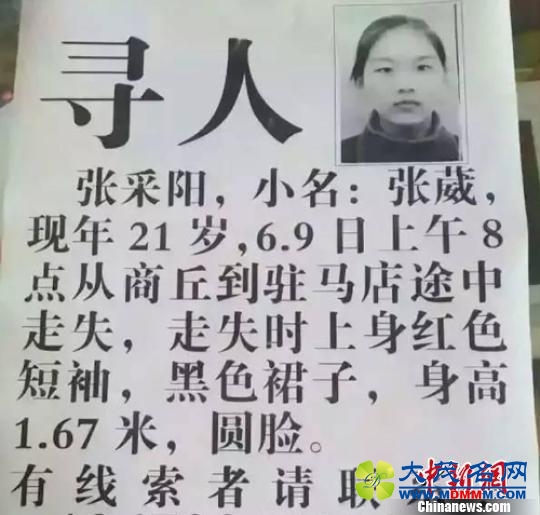 寻人
张采阳，小名：张葳，
现年21岁,6.9日上午8
点从商丘到驻马店途中
走失，走失时上身红色
短袖，黑色裙子，身高
1.67米，圆脸。
有线索者请联
大茂名网
WWW.MDMMM.COM
中新网
Chinanews.com